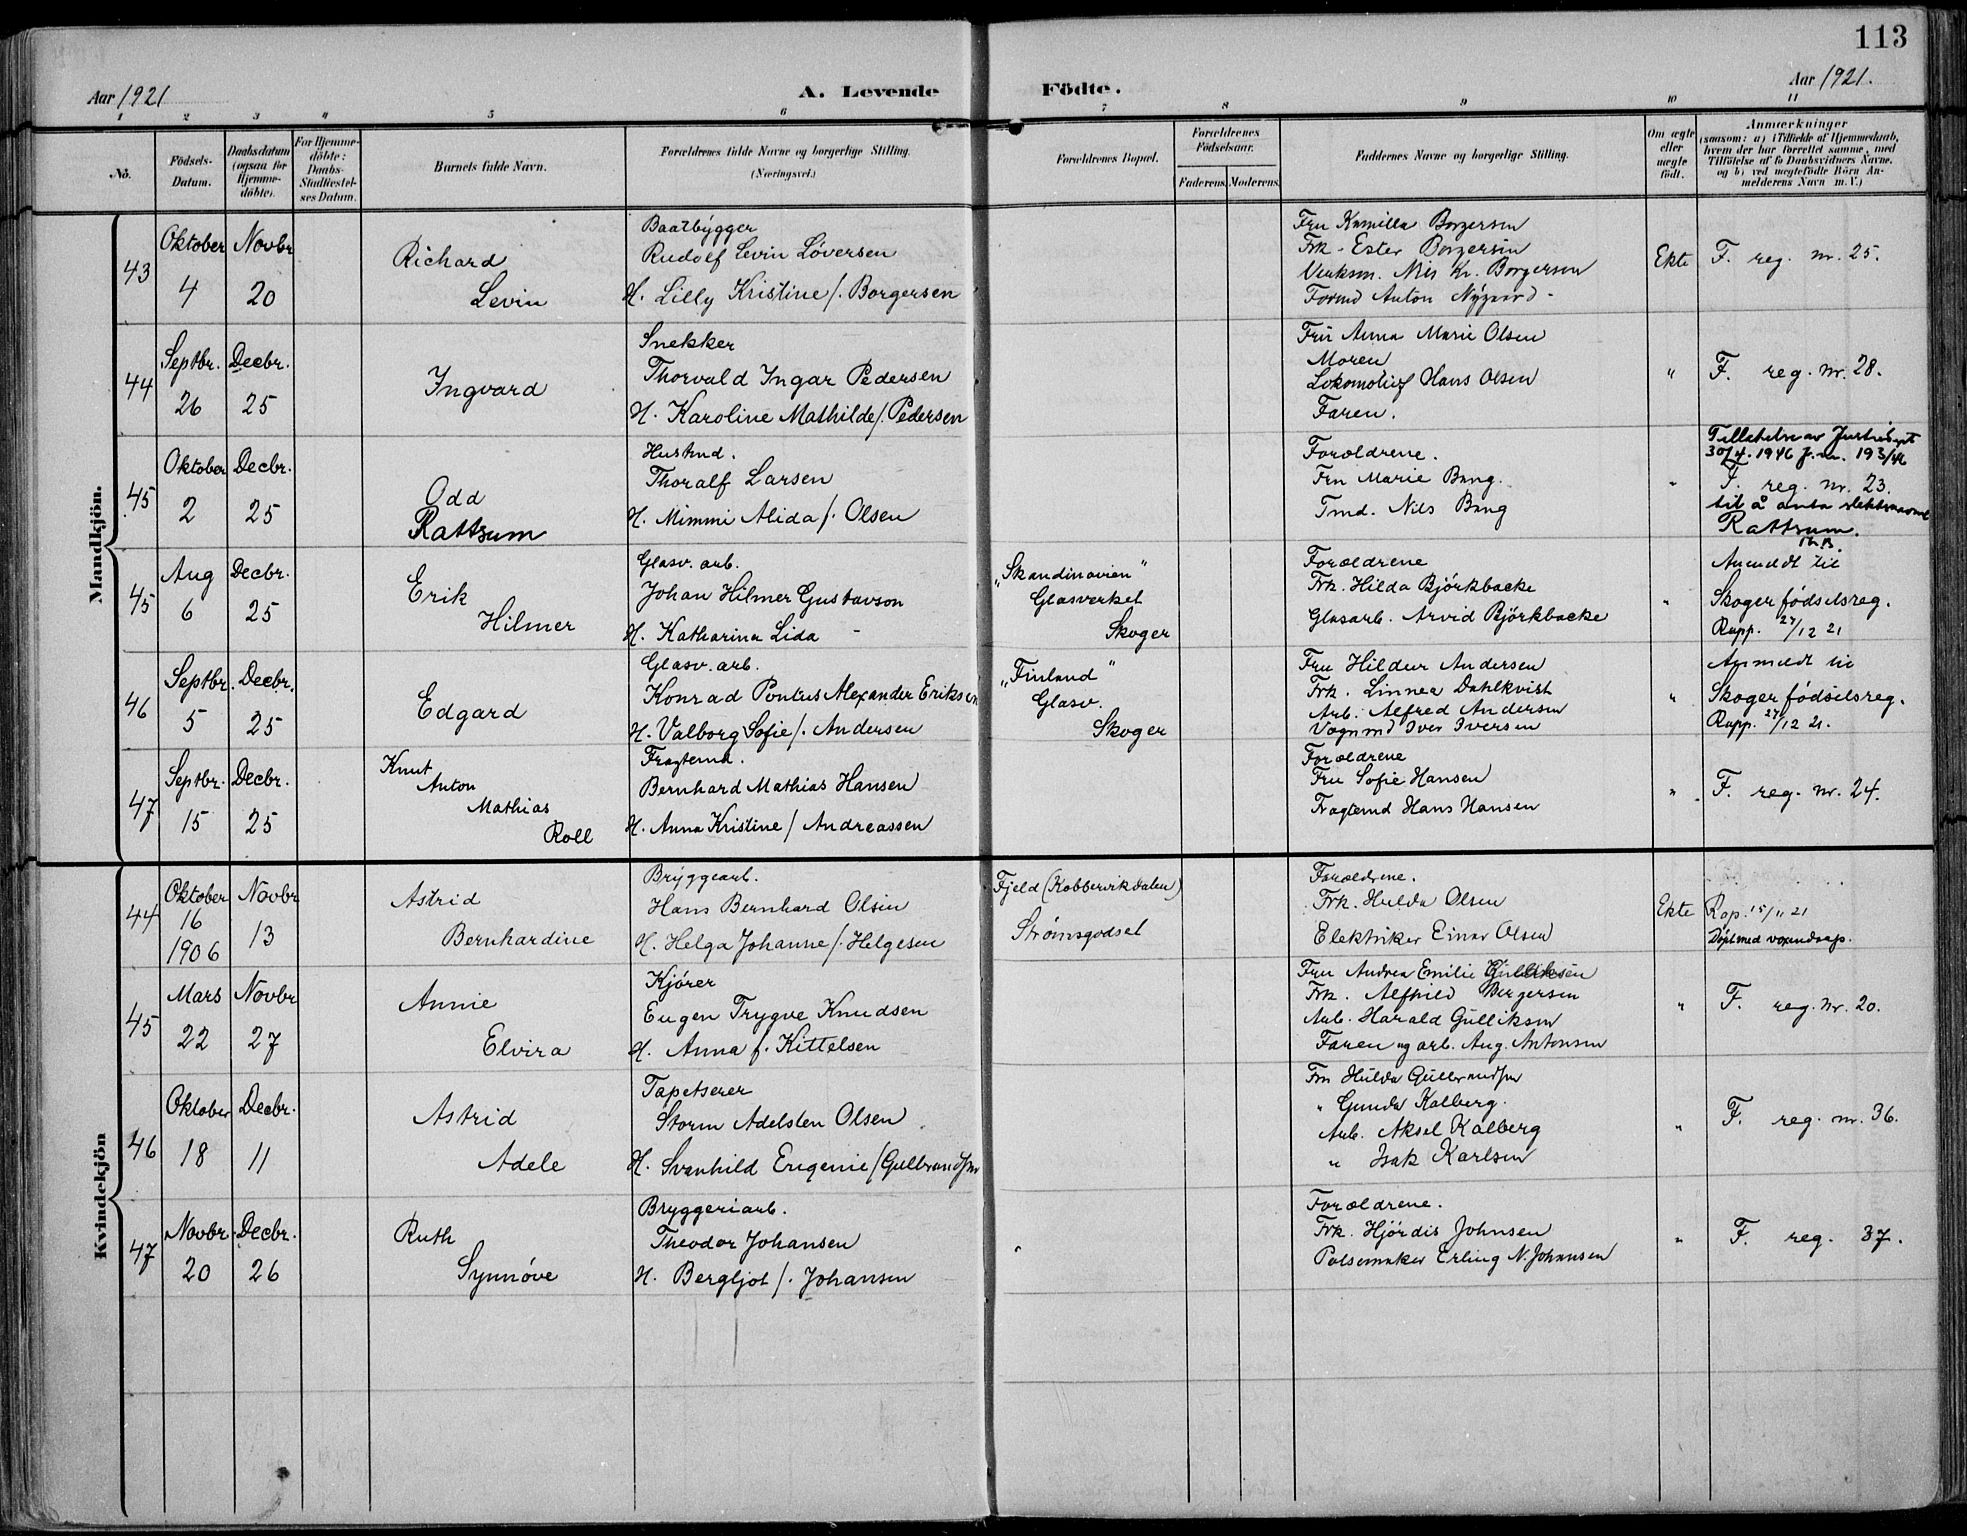 113
Aar 1921
A. Levende Födte.
Aar 1921.
1 2 3 4 5 6 7 8 9 10 11
No.
Födsels-
Datum.
Daabsdatum
(ogsaa för
Hjemme-
döbte).
For Hjemme-
döbte:
Daabs-
Stadfæstel-
ses Datum.
Barnets fulde Navn.
Forældrenes fulde Navne og borgerlige Stilling.
(Næringsvei.)
Forældrenes Bopæl.
Forældrenes
Födselsaar.
Faderens. Moderens.
Faddernes Navne og borgerlige Stilling.
Om ægte
eller
uægte
födt.
Anmærkninger
(saasom: a) i Tilfælde af Hjemmedaab,
hvem der har forrettet samme, med
Tilföielse af to Daabsvidners Navne.
og b) ved uægtefödte Börn An-
melderens Navn m. V.)
Mandkjön.
43
Oktober Novbr
4 20
Richard
Levin
Baatbygger
Rudolf Levin Löversen
H. Lilly Kristine f. Borgersen
Fru Kamilla Borgersen
Frk. Ester Borgersen
Verksm. Nils Kr. Borgersen
Formd Anton Nygaard
Ekte
F. reg. nr. 25.
44
Septbr. Decbr.
26 25
Ingvard
Snekker
Thorvald Ingar Pedersen
H. Karoline Mathilde f. Pedersen
Fru Anna Marie Olsen
Moren
Lokomotivf Hans Olsen
Faren.
"
F. reg. nr. 28.
45
Oktober Decbr.
2 25
Odd
Rattsum
Hustmd.
Thoralf Larsen
H. Mimmi Alida f. Olsen
Forældrene.
Fru Marie Bang.
Tmd. Nils Bang
"
Tillatelse av Justisdept
30/4. 1946 J.nr. 193/46
F. reg. nr. 23.
til å anta slektsnavnet
Rattsum.
45
Aug Decbr.
6 25
Erik
Hilmer
Glasv. arb.
Johan Hilmer Gustavson
H. Katharina Lida
"Skandinavien"
Glasverket
Skoger
Forældrene
Frk. Hilda Björkbacke
Glasarb. Arvid Björkbacke
"
Anmeldt til
Skoger fødselsreg.
Rapp. 27/12 21
46
Septbr. Decbr.
5 25
Edgard
Glasv. arb.
Konrad Pontus Alexander Eriksen
H. Valborg Sofie f. Andersen
"Finland"
Glasv.
Skoger
Fru Hildur Andersen
Frk. Linnea Dahlkvist
Arb. Alfred Andersen
Vognmd Iver Iversen
"
Anmeldt til
Skoger fødselsreg.
Rapp. 27/12 21.
47
Septbr. Decbr.
15 25
Knut
Anton
Mathias
Roll
Fragtemd.
Bernhard Mathias Hansen
H. Anna Kristine f Andreassen
Forældrene
Fru Sofie Hansen
Fragtemd Hans Hansen
"
F. reg. nr. 24.
Kvindekjön
44
Oktober Novbr
16 13
1906
Astrid
Bernhardine
Bryggearb.
Hans Bernhard Olsen
H. Helga Johanne f. Helgesen
Fjeld (Kobbervikdalen)
Strømsgodset
Forældrene.
Frk. Hulda Olsen
Elektriker Einar Olsen
Ekte
Rap. 15/11 21
Døpt med voxendaap.
45
Mars Novbr
22 27
Annie
Elvira
Kjører
Eugen Trygve Knudsen
H. Anna f. Kittelsen
Fru Andrea Emilie Gulliksen
Frk. Alfhild Bergersen
Arb. Harald Gulliksen
Faren og arb. Aug. Antonsen
"
F. reg. nr. 20.
46
Oktober Decbr.
18 11
Astrid
Adele
Tapetserer
Storm Adelsten Olsen
H. Svanhild Eugenie f Gulbrandsen
Fru Hulda Gulbrandsen
" Gunda Kalberg.
Arb. Aksel Kalberg
" Isak Karlsen
"
F. reg. nr. 36.
47
Novbr. Decbr.
20 26
Ruth
Synnöve
Bryggeriarb.
Theodor Johansen
H. Bergljot f. Johansen
Forældrene.
Frk. Hjördis Johnsen
Pølsemaker Erling N. Johansen
"
F. reg. 37.